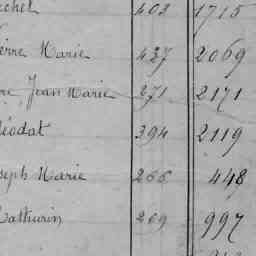 ochel 402 1715
erre Marie 437 2069
re Jean Marie 271 2171
éodat 394 2119
seph Marie 266 448
athurin 269 997